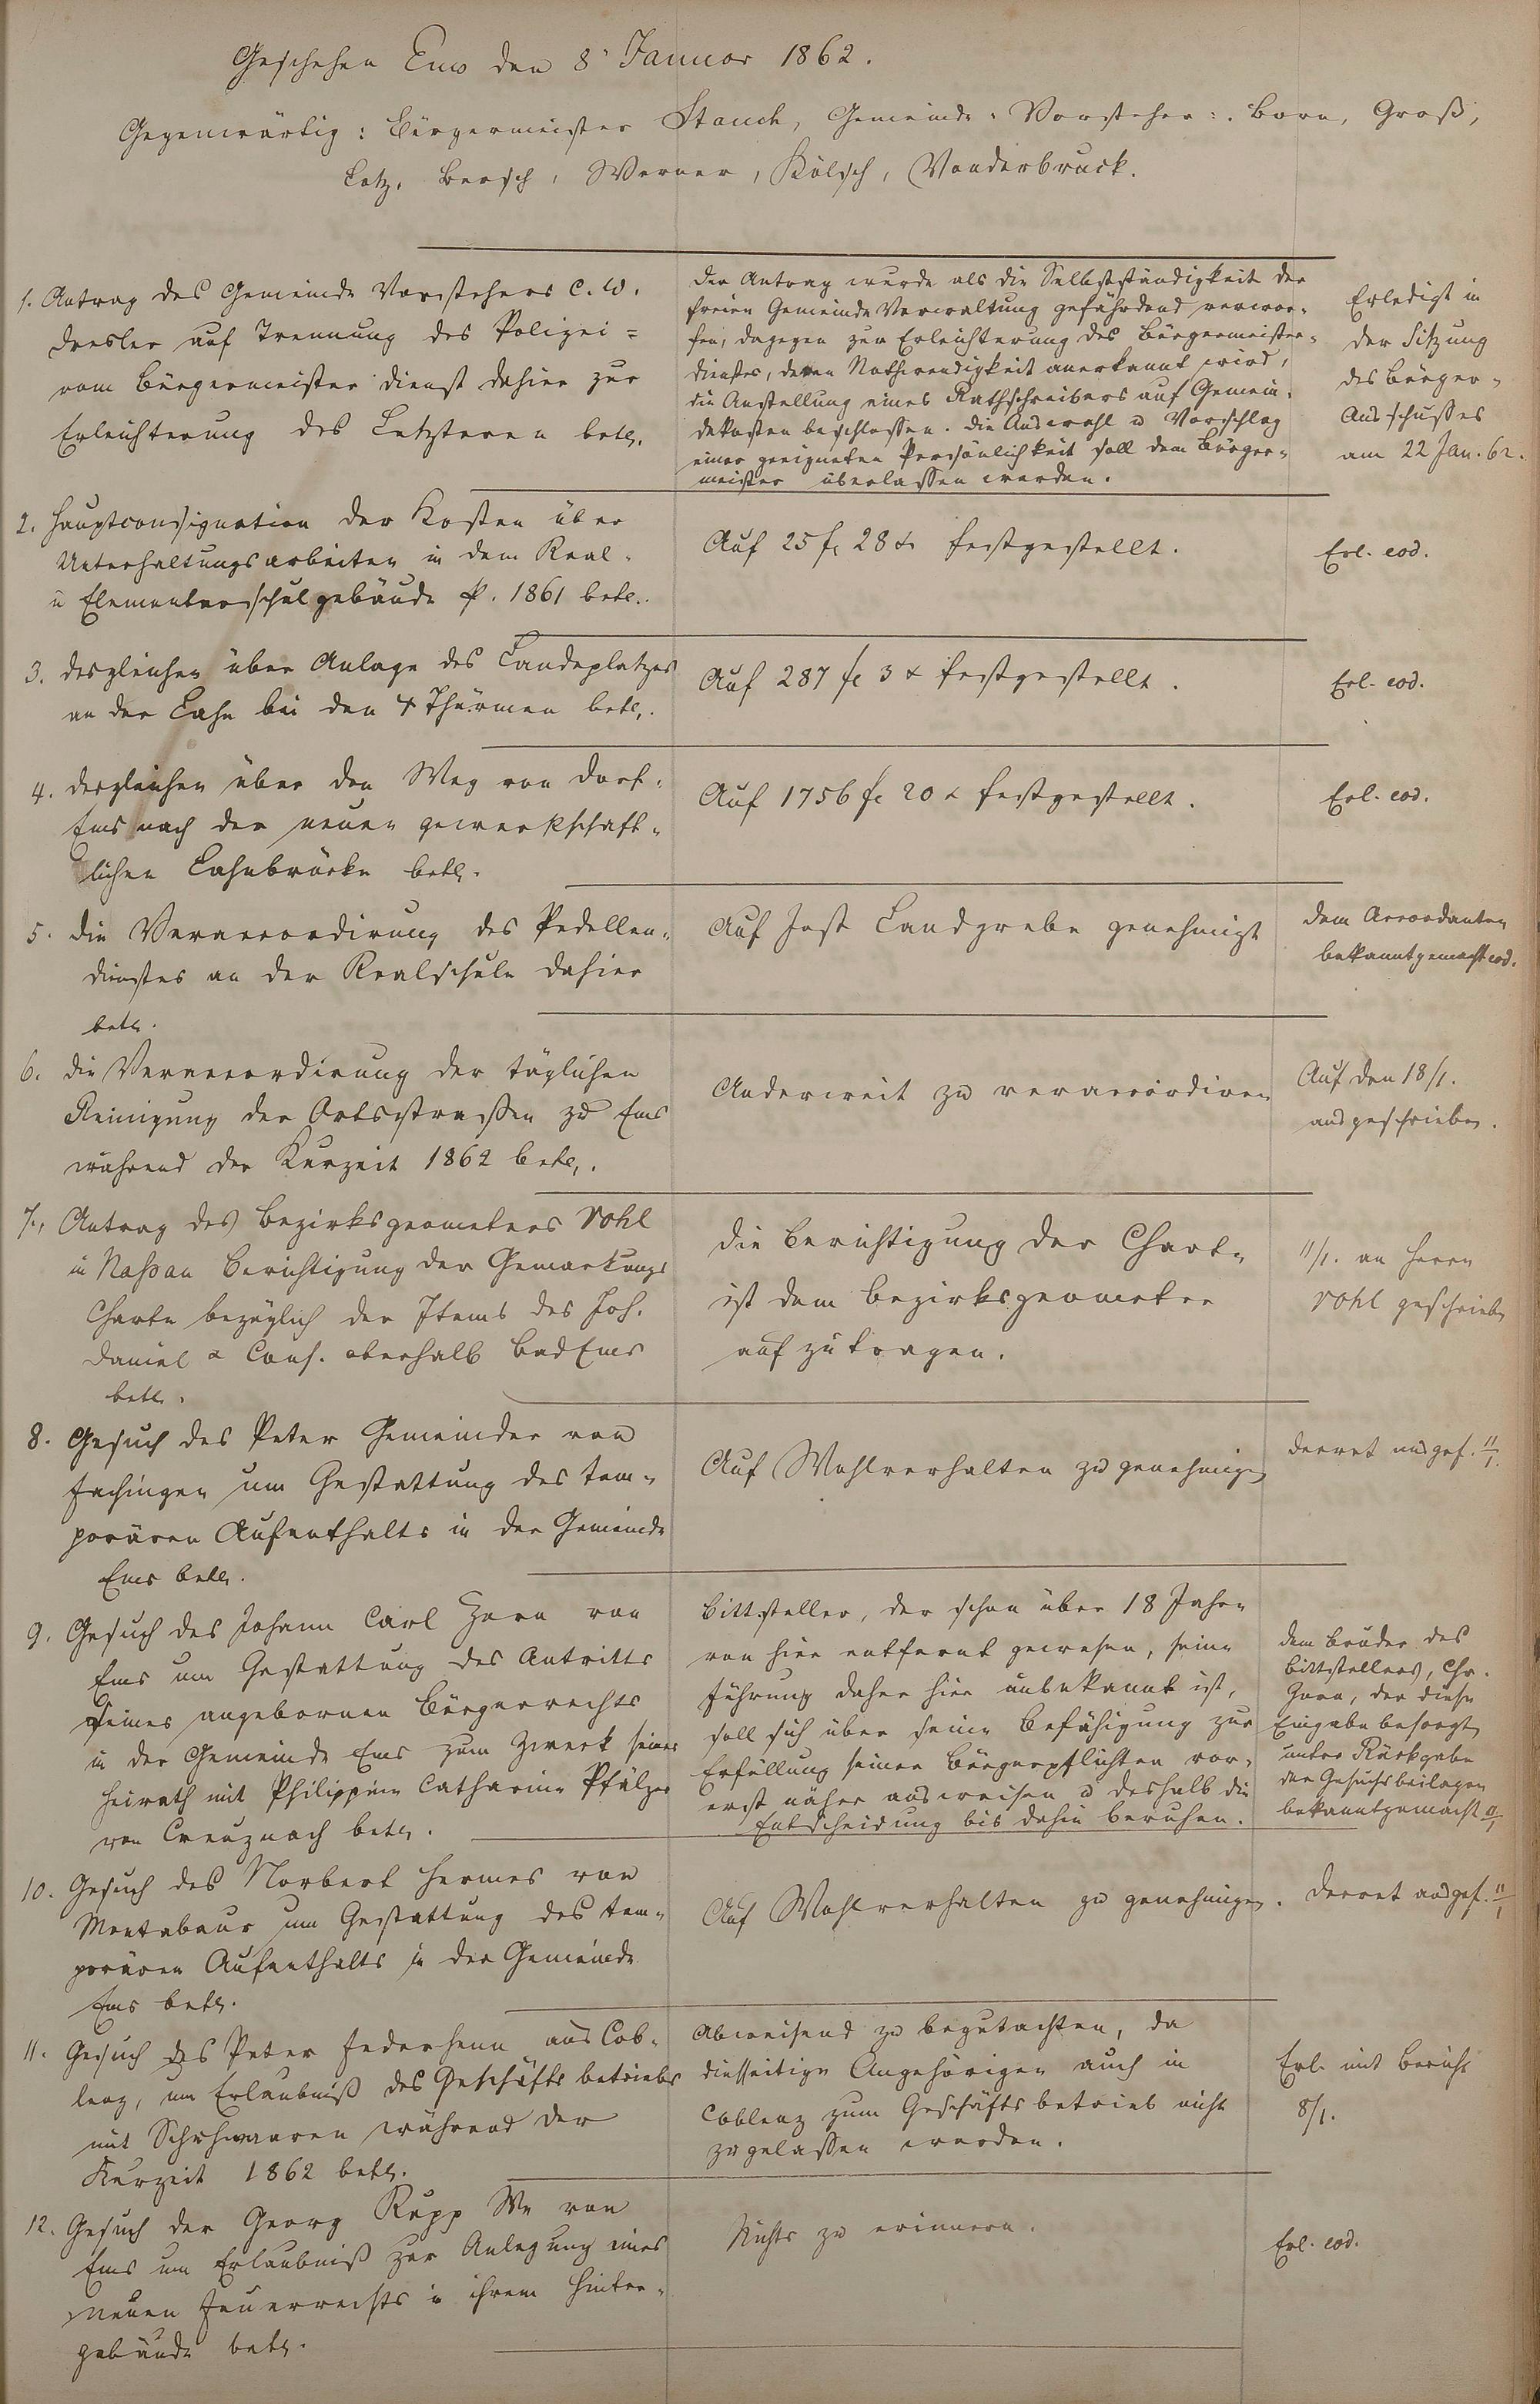 Geschehen Ems den 8. Januar 1862.
Gegenwärtig: Bürgermeister Stauch, Gemeinde-Vorsteher: Born, Groß,
Lotz, Bersch, Werner, Kölsch, Vonderbruck.
1. Antrag des Gemeinde Vorstehers C. W.
Dresler auf Trennung des Polizei-
vom Bürgermeister Dienst dahier zur
Erleichterung des Letzteren betr.
Der Antrag wurde als die Selbstständigkeit der
freien Gemeinde Verwaltung gefährdend verwor-
fen, dagegen zur Erleichterung des Bürgermeister-
dienstes, deren Nothwendigkeit anerkannt wird,
die Anstellung eines Rathschreibers auf Gemein-
dekosten beschlossen. Die Auswahl u Vorschlag
einer geeigneten Persönlichkeit soll dem Bürger-
meister überlassen werden.
Erledigt in
der Sitzung
des Bürger-
Ausschußes
am 22 Jan. 62.
2. Hauptconsignation der Kosten über
Unterhaltungsarbeiten in dem Real-
u Elementarschulgebäude p. 1861 betr.
Auf 25 f 28 x festgestellt.
Erl. eod.
3. desgleichen über Anlage des Landeplatzes
an der Lahn bei den 4 Thürmen betr.
Auf 287 f 3 x festgestellt.
Erl. eod.
4. desgleichen über den Weg von Dorf-
Ems nach der neuen gewerkschaft-
lichen Lahnbrücke betr.
Auf 1756 f 20 x festgestellt.
Erl. eod.
5. die Veraccordirung des Pedellen-
dienstes an der Realschule dahier
betr.
Auf Jost Landgrebe genehmigt
dem Accordanten
bekanntgemacht eod.
6. die Veraccordirung der täglichen
Reinigung der Ortsstraßen zu Ems
während der Kurzeit 1862 betr.
Anderweit zu veraccordiren
Auf den 18/1.
ausgeschrieben.
7. Antrag des Bezirksgeometers Vohl
in Nassau Berichtigung der Gemarkungs
Charte bezüglich der Items des Joh.
Daniel & Cons. oberhalb Bad Ems
betr.
die Berichtigung der Charte
ist dem Bezirksgeometer
aufzutragen.
11/1. an Herrn
Vohl geschrieben
8. Gesuch des Peter Gemeinder von
Fachingen um Gestattung des tem-
porären Aufenthalts in der Gemeinde
Ems betr.
Auf Wohlverhalten zu genehmigen
Decret ausgef. 11/1.
9. Gesuch des Johann Carl Zorn von
Ems um Gestattung des Antritts
seines angebornen Bürgerrechts
in der Gemeinde Ems zum Zweck seiner
Heirath mit Philippine Catharine Pfälzer
von Creuznach betr.
Bittsteller, der schon über 18 Jahre
von hier entfernt gewesen, seine
Führung daher hier unbekannt ist,
soll sich über seine Befähigung zur
Erfüllung seiner Bürgerpflichten vor-
erst näher ausweisen u deshalb die
Entscheidung bis dahin beruhen.
dem Bruder des
Bittstellers, Chr.
Zorn, der diese
Eingabe besorgt,
unter Rückgabe
der Gesuchsbeilagen
bekanntgemacht 11/1
10. Gesuch des Norbert Hermes von
Montabaur um Gestattung des tem-
porären Aufenthalts in der Gemeinde
Ems betr.
Auf Wohlverhalten zu genehmigen.
Decret ausgef. 11/1
11. Gesuch des Peter Federhenn aus Cob-
lenz, um Erlaubniß des Geschäftsbetriebs
mit Schuhwaaren während der
Kurzeit 1862 betr.
Abweisend zu begutachten, da
diesseitige Angehörigen auch in
Coblenz zum Geschäftsbetrieb nicht
zugelassen werden.
Erl. mit Bericht
8/1.
12. Gesuch der Georg Rupp Ww von
Ems um Erlaubniß zur Anlegung eines
neuen Feuerrechts in ihrem Hinter-
gebäude betr.
Nichts zu erinnern.
Erl. eod.